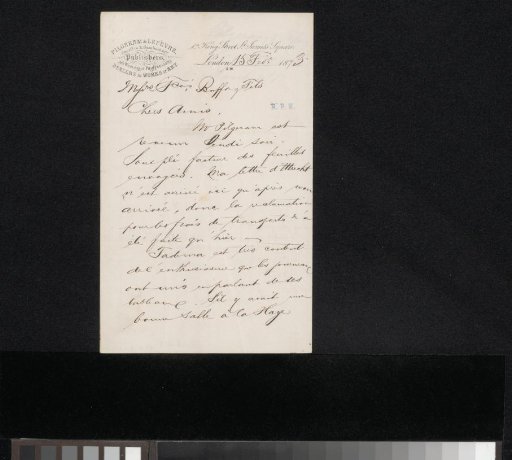 PILGERAM & LEFÈVRE,
Publishers,
DEALERS in WORKS of ART
1ᴬ King Street St James's Square,
London, 15 Feb 1873
Mess Fran Buffa & Fils
Chers Amis,
Mr Pilgeram est
revenu Lundi soir.
Sous pli facture des feuilles
envoyées. Ma lettre d'Utrecht
n'est arrivé ici qu'après mon
arrivée, donc la réclamation
pour les frais de transports a
été faite qu'hier
Tadema est très content
de l'enthousiasme que les journaux
ont mis en parlant de ses
tableaux. S'il y avait une
bonne salle à La Haye